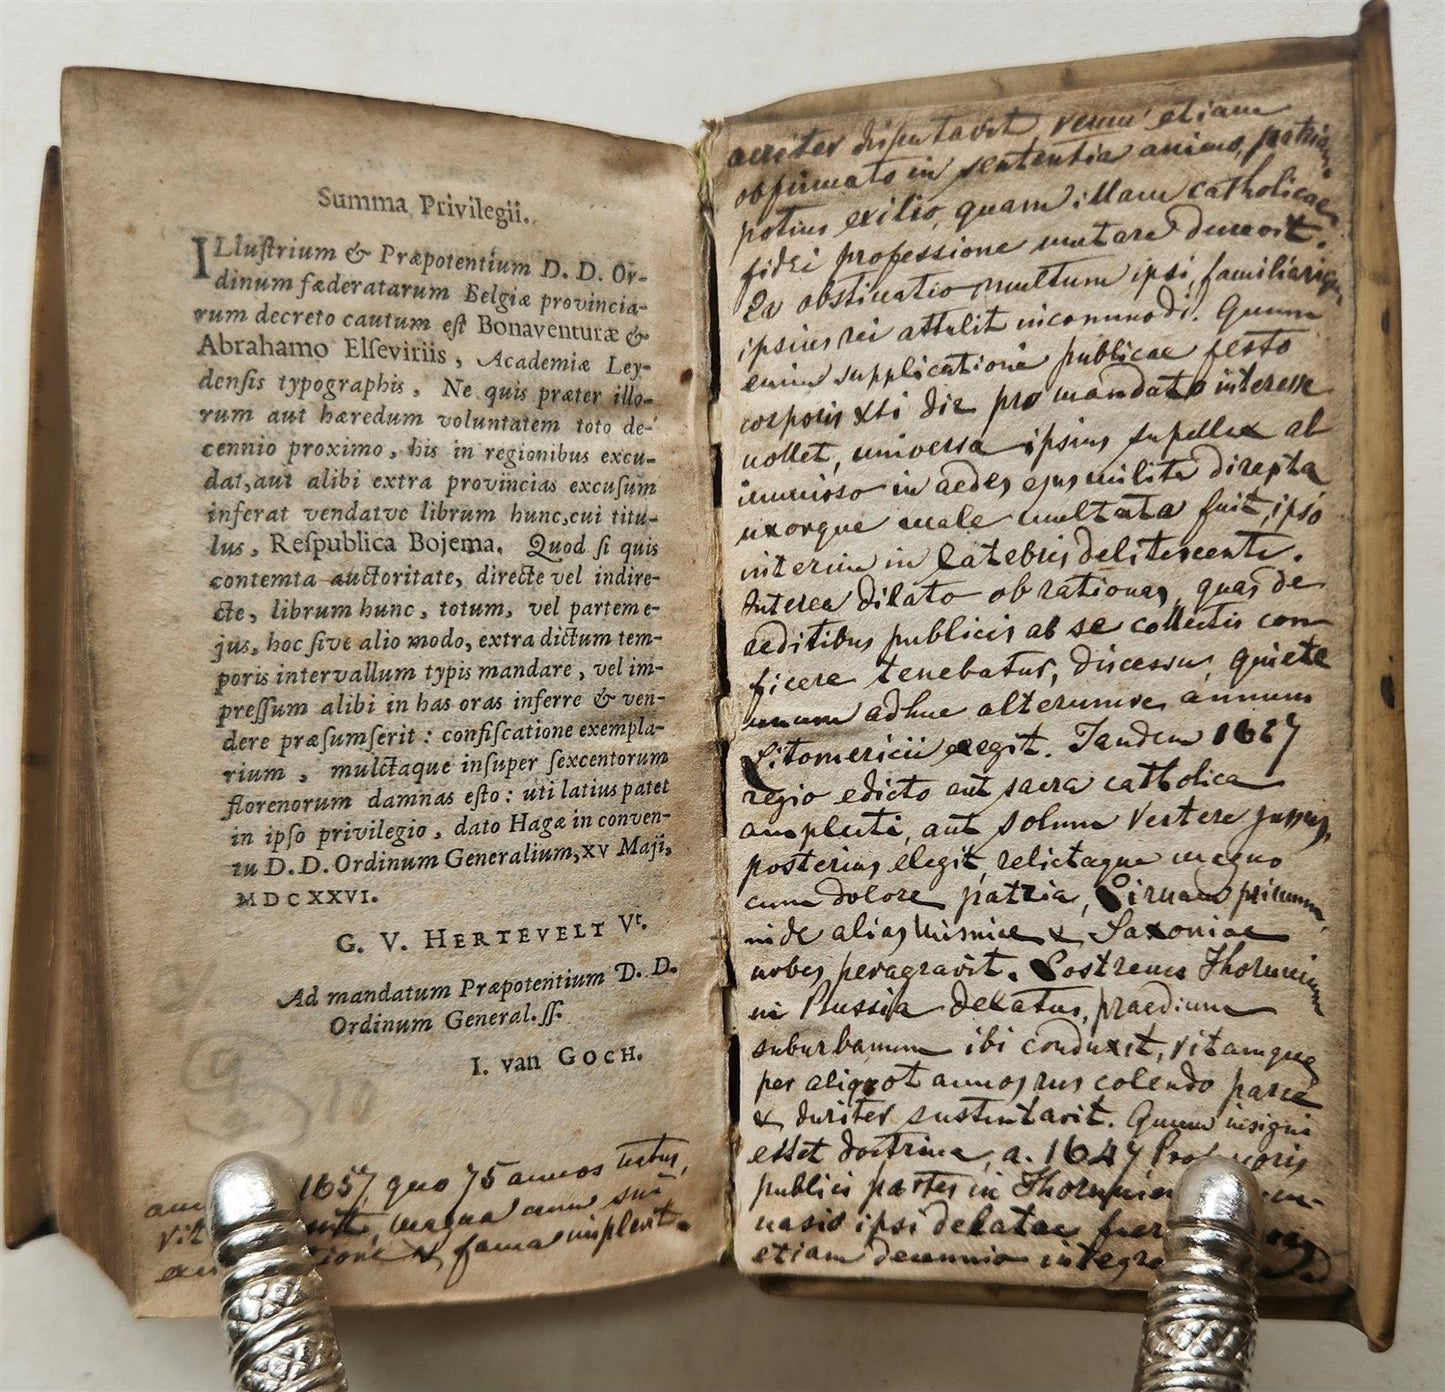 Summa Privilegii.
ILluſtrium & Præpotentium D. D. Or-
dinum fæderatarum Belgiæ provincia-
rum decreto cautum eſt Bonaventuræ &
Abrahamo Elſeviriis, Academiæ Ley-
denſis typographis, Ne quis præter illo-
rum aut hæredum voluntatem toto de-
cennio proximo, his in regionibus excu-
dat, aut alibi extra provincias excuſum
inferat vendatve librum hunc, cui titu-
lus, Reſpublica Bojema. Quod ſi quis
contemta auctoritate, directe vel indire-
cte, librum hunc, totum, vel partem e-
jus, hoc ſive alio modo, extra dictum tem-
poris intervallum typis mandare, vel im-
preſſum alibi in has oras inferre & ven-
dere præſumſerit: confiſcatione exempla-
rium, mulctaque inſuper ſexcentorum
florenorum damnas eſto: uti latius patet
in ipſo privilegio, dato Hagæ in conven-
tu D. D. Ordinum Generalium, XV Maji,
MDCXXVI.
G. V. HERTEVELT Vt.
Ad mandatum Præpotentium D. D.
Ordinum General. ſſ.
I. van GOCH.
1657, quo 75 annos natus,
magna cum sui
& fama implevit.
acriter disputavit, verum etiam
obfirmato in sententia animo, patriam
potius exilio, quam illam catholicae
fidei professione mutare decrevit.
Ea obstinatio multum ipsi, familiarique
ipsius rei attulit incommodi. Quum
enim supplicationi publicae festo
corporis Xti die pro mandato interesse
nollet, universa ipsius supellex ab
immisso in aedes ejus milite direpta
uxorque male multata fuit, ipso
interim in latebris delitescente.
Interea dilato ob rationes, quas de
reditibus publicis ab se collectis con
ficere tenebatur, discessu, quiete
unum adhuc alterumve annum
Litomericii exegit. Tandem 1627
regio edicto aut sacra catholica
amplecti, aut solum vertere jussus,
posterius elegit, relictaque magno
cum dolore patria, Pirnam primum,
inde alias Misniae & Saxoniae
urbes peragravit. Postremo Thorunium
in Prussia delatus, praedium
suburbanum ibi conduxit, vitamque
per aliquot annos rus colendo parce
& duriter sustentavit. Quum insigni
esset doctrina, a. 1647 Professoris
publici partes in Thorunien
nasio ipsi delatae
etiam decennio integro